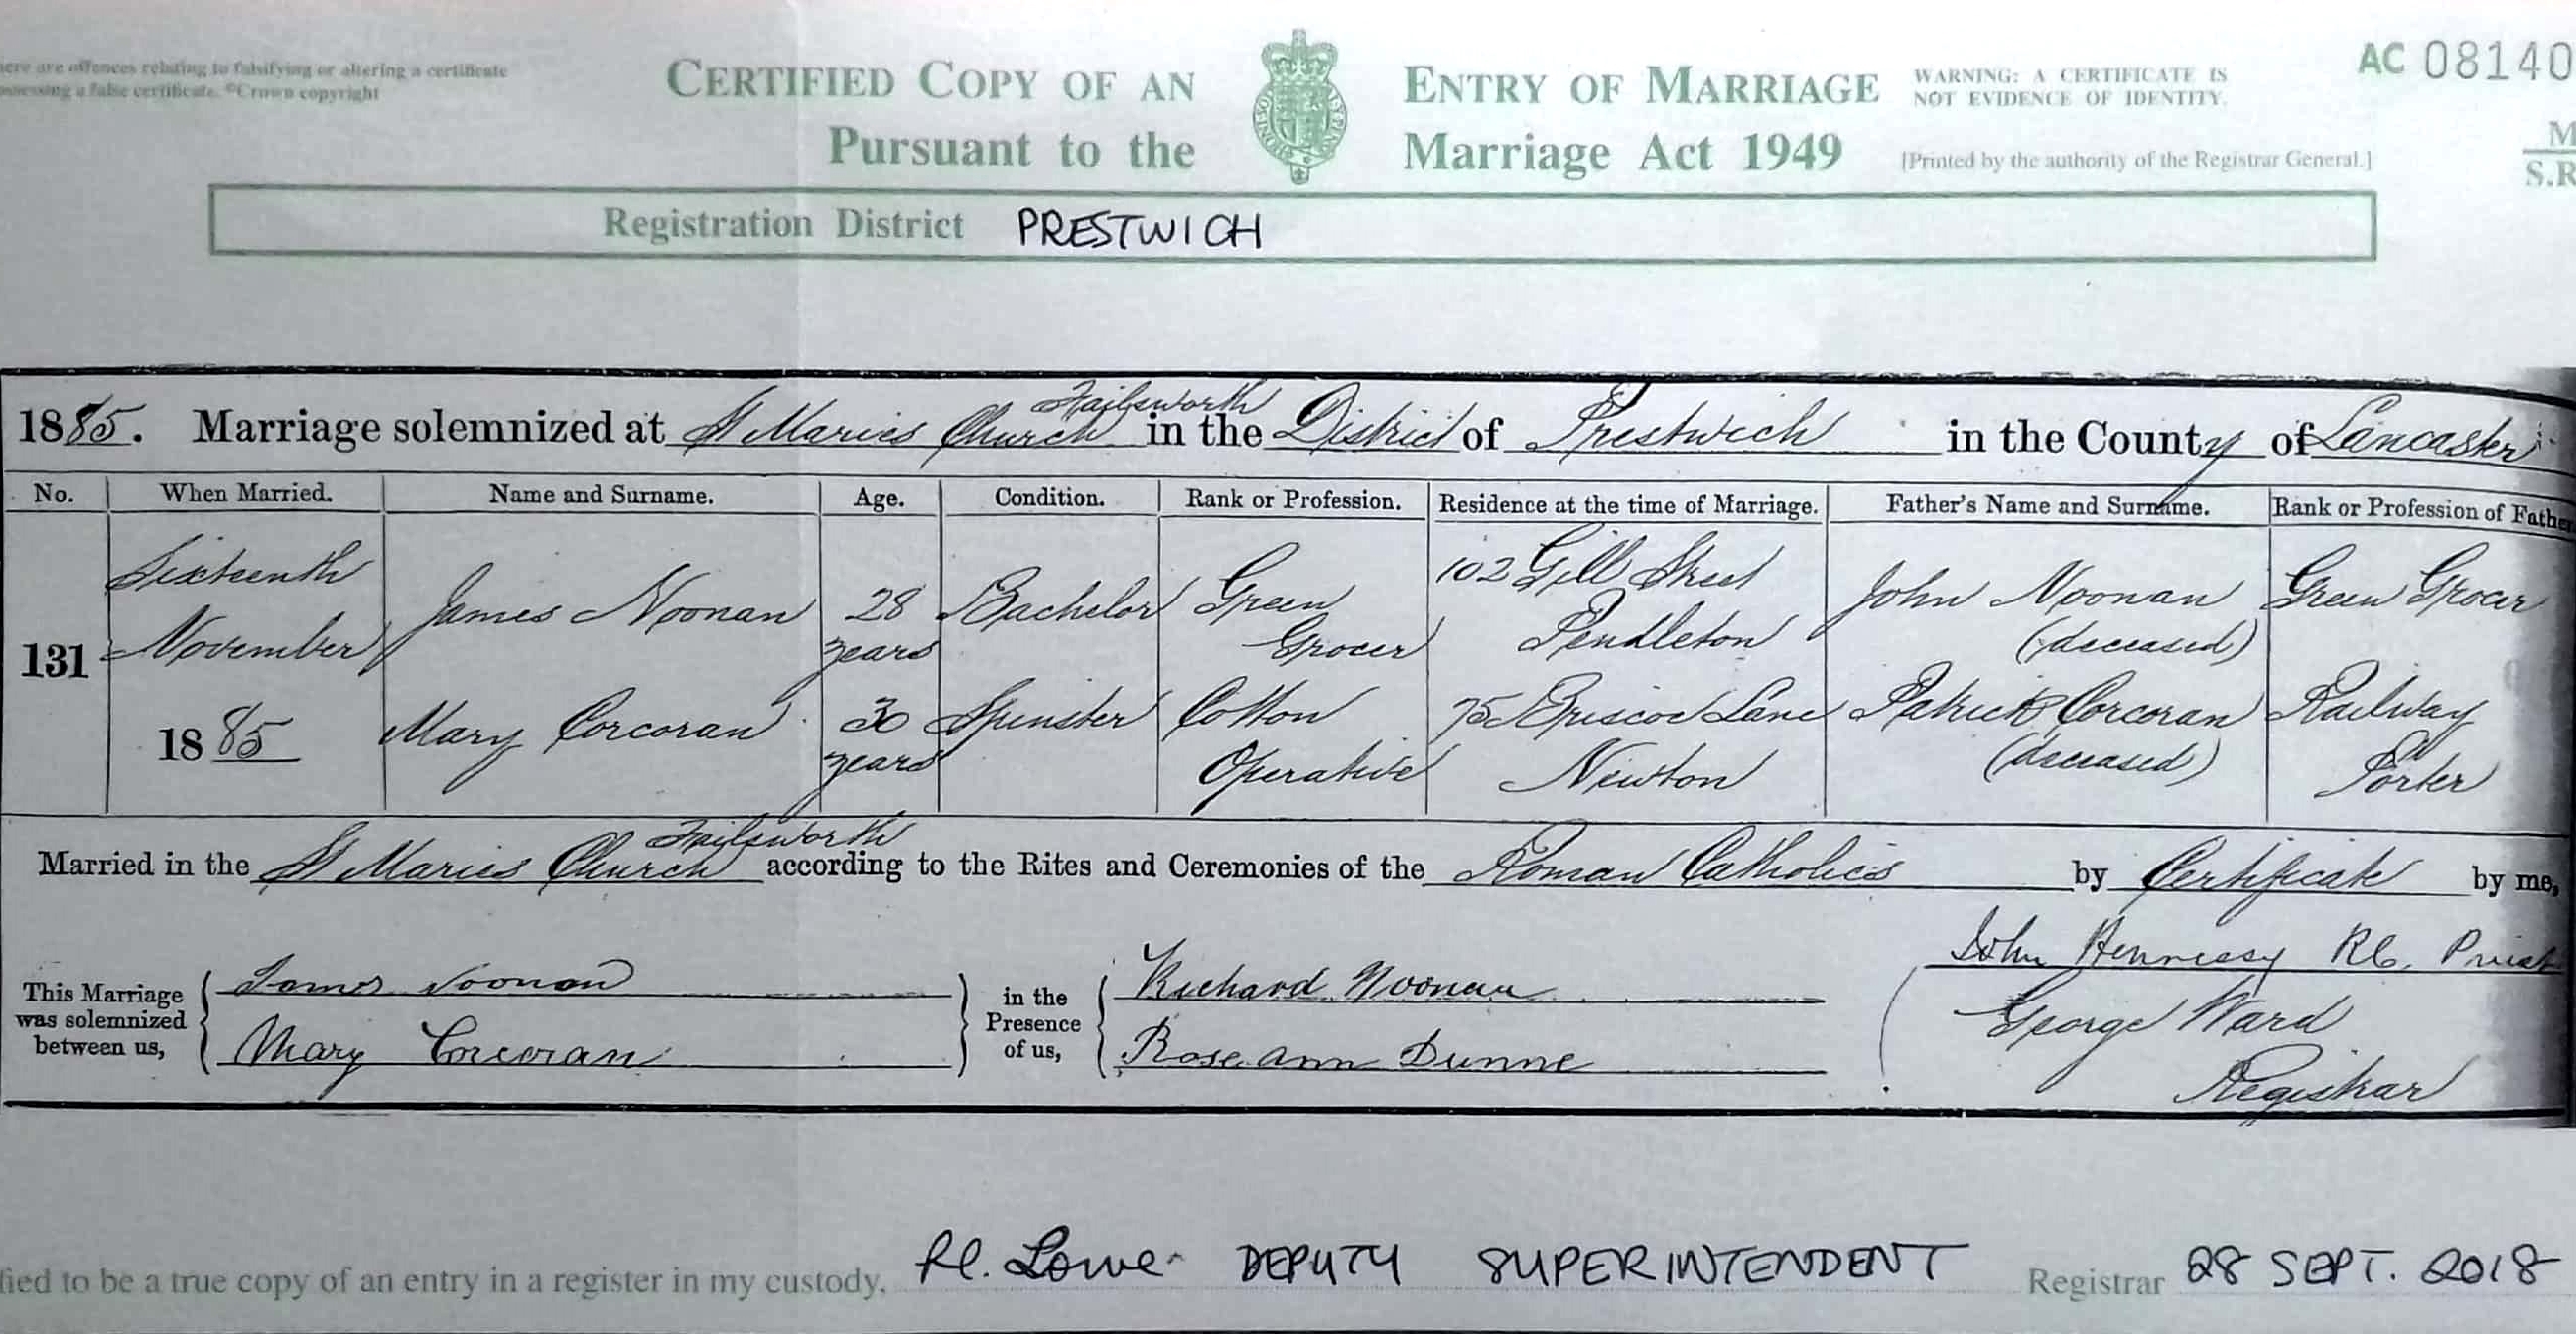 here are offences relating to falsifying or altering a certificate
possessing a false certificate. ©Crown copyright
CERTIFIED COPY OF AN ENTRY OF MARRIAGE
Pursuant to the Marriage Act 1949
WARNING: A CERTIFICATE IS
NOT EVIDENCE OF IDENTITY.
[Printed by the authority of the Registrar General.]
AC 08140
M
S.R
Registration District PRESTWICH
Failsworth
1885. Marriage solemnized at St Maries Church in the District of Prestwich in the County of Lancaster
No. When Married. Name and Surname. Age. Condition. Rank or Profession. Residence at the time of Marriage. Father's Name and Surname. Rank or Profession of Father
131
Sixteenth
November
1885
James Noonan
28
years
Bachelor
Green
Grocer
102 Gill Street
Pendleton
John Noonan
(deceased)
Green Grocer
Mary Corcoran
30
years
Spinster
Cotton
Operative
75 Briscoe Lane
Newton
Patrick Corcoran
(deceased)
Railway
Porter
Failsworth
Married in the St Maries Church according to the Rites and Ceremonies of the Roman Catholics by Certificate by me,
This Marriage
was solemnized
between us,
James Noonan
Mary Corcoran
in the
Presence
of us,
Richard Noonan
Rose ann Dunne
John Hennessy RC. Priest
George Ward
Registrar
fied to be a true copy of an entry in a register in my custody. Lowe DEPUTY SUPERINTENDENT Registrar 28 SEPT. 2018